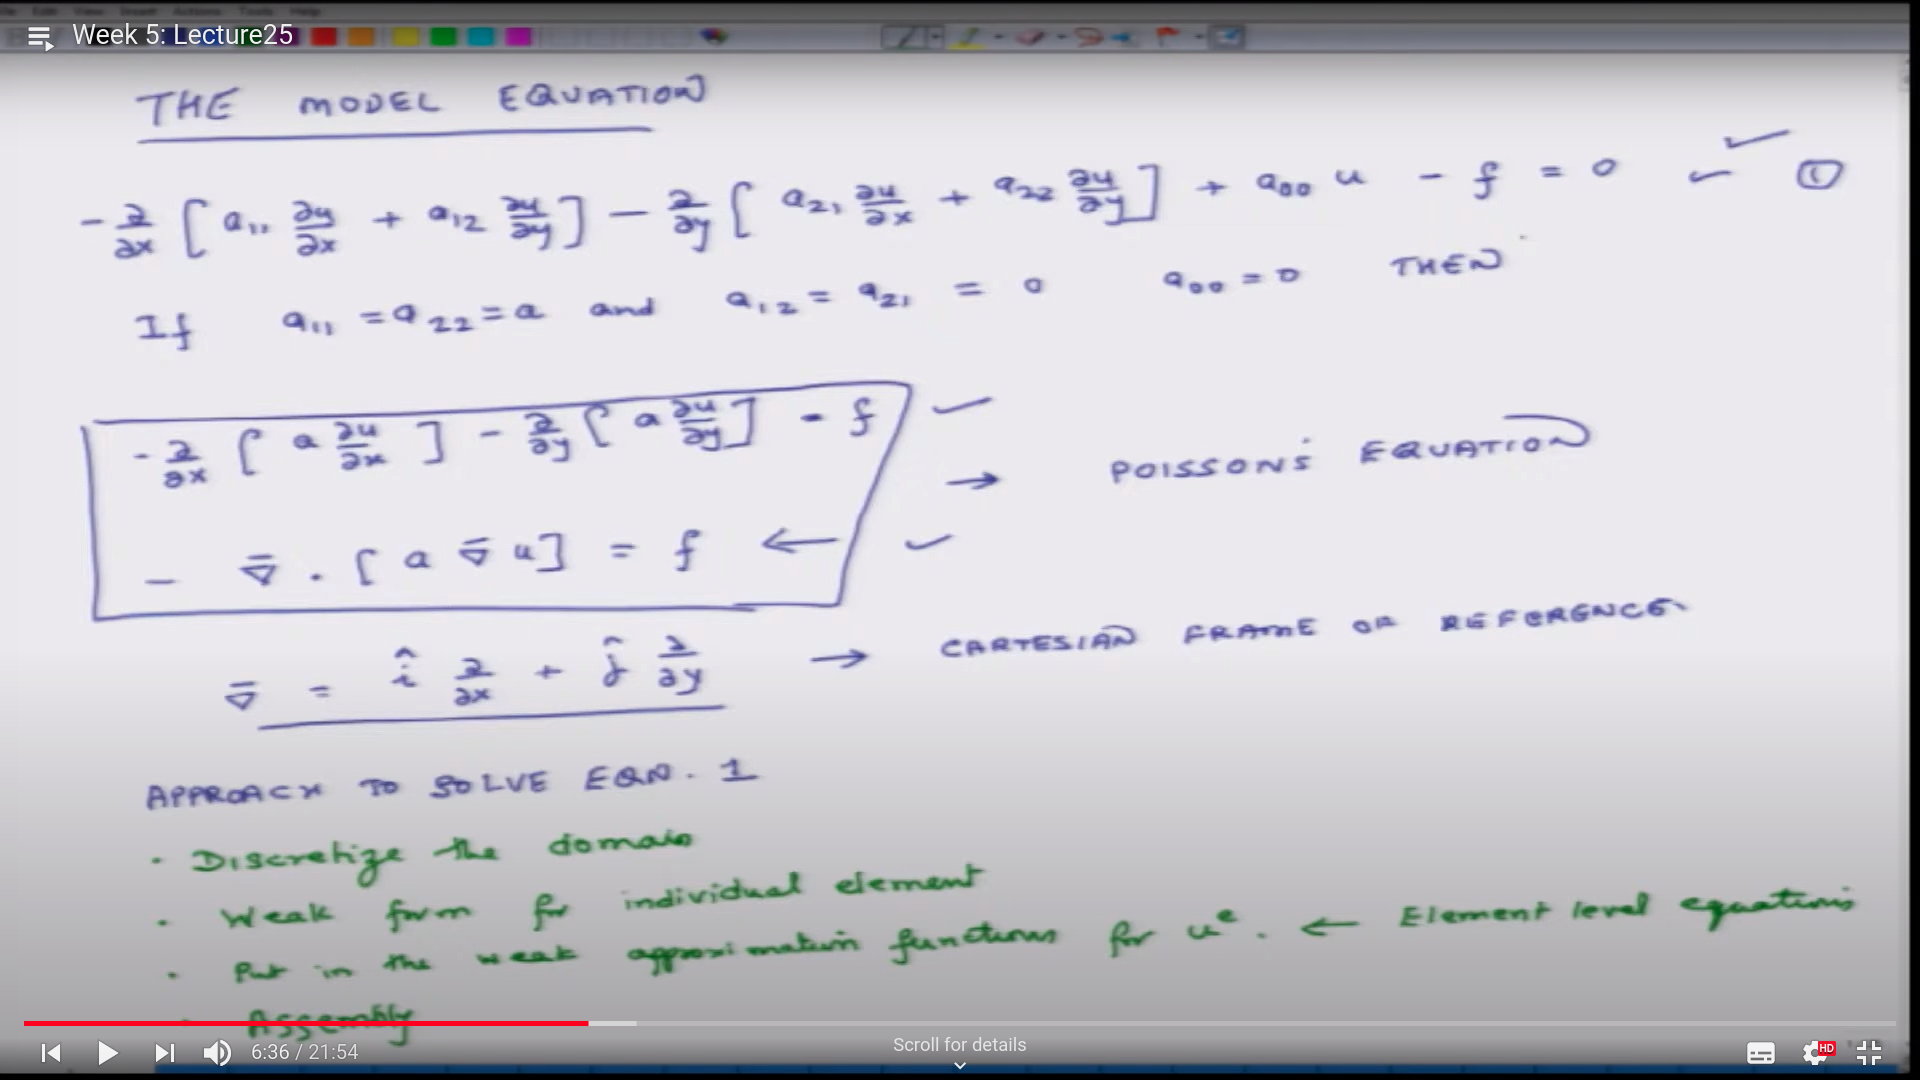 Week 5: Lecture25
THE MODEL EQUATION
- ∂/∂x [ a₁₁ ∂u/∂x + a₁₂ ∂u/∂y ] - ∂/∂y [ a₂₁ ∂u/∂x + a₂₂ ∂u/∂y ] + a₀₀ u - f = 0 ✓ ①
If a₁₁ = a₂₂ = a and a₁₂ = a₂₁ = 0 a₀₀ = 0 THEN
- ∂/∂x [ a ∂u/∂x ] - ∂/∂y [ a ∂u/∂y ] = f ✓
→ POISSON'S EQUATION
- ∇̄ · [ a ∇̄ u ] = f ← ✓
∇̄ = î ∂/∂x + ĵ ∂/∂y → CARTESIAN FRAME OF REFERENCE
APPROACH TO SOLVE EQN. 1
· Discretize the domain
· Weak form for individual element
· Put in the weak approximation functions for uᵉ. ← Element level equations
· Assembly
6:36 / 21:54
Scroll for details
HD